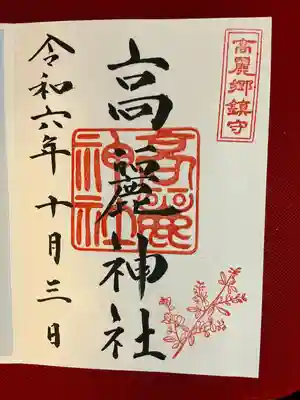 高麗郷鎮守
高麗神社
高麗
神社
令和六年十月三日